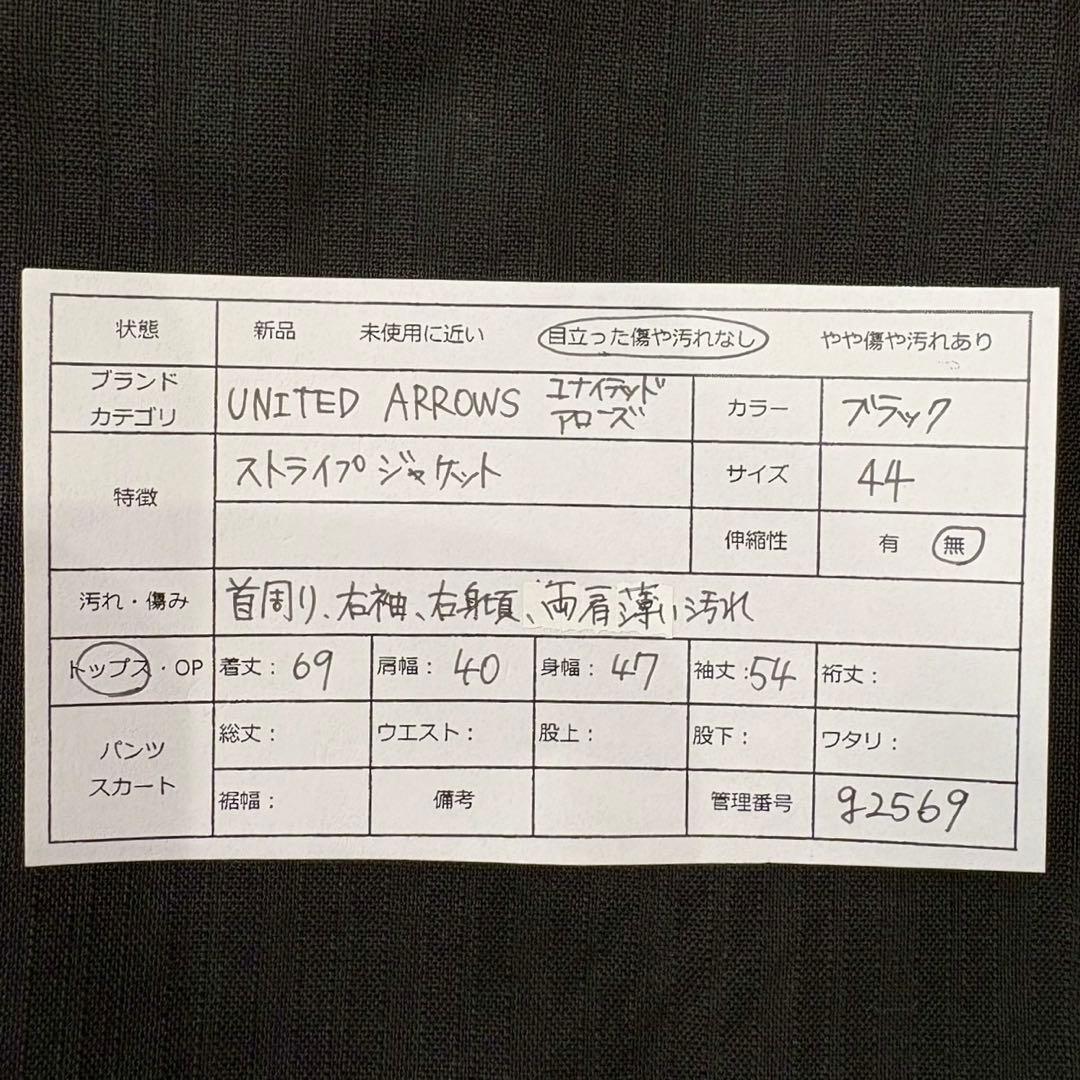 状態 新品 未使用に近い 目立った傷や汚れなし やや傷や汚れあり
ブランド
カテゴリ
UNITED ARROWS ユナイテッド
アローズ
カラー ブラック
特徴
ストライプジャケット
サイズ 44
伸縮性 有 無
汚れ・傷み 首周り、右袖、右身頃、両肩薄い汚れ
トップス・OP 着丈：69 肩幅：40 身幅：47 袖丈：54 裄丈：
パンツ
スカート
総丈： ウエスト： 股上： 股下： ワタリ：
裾幅： 備考 管理番号 g2569